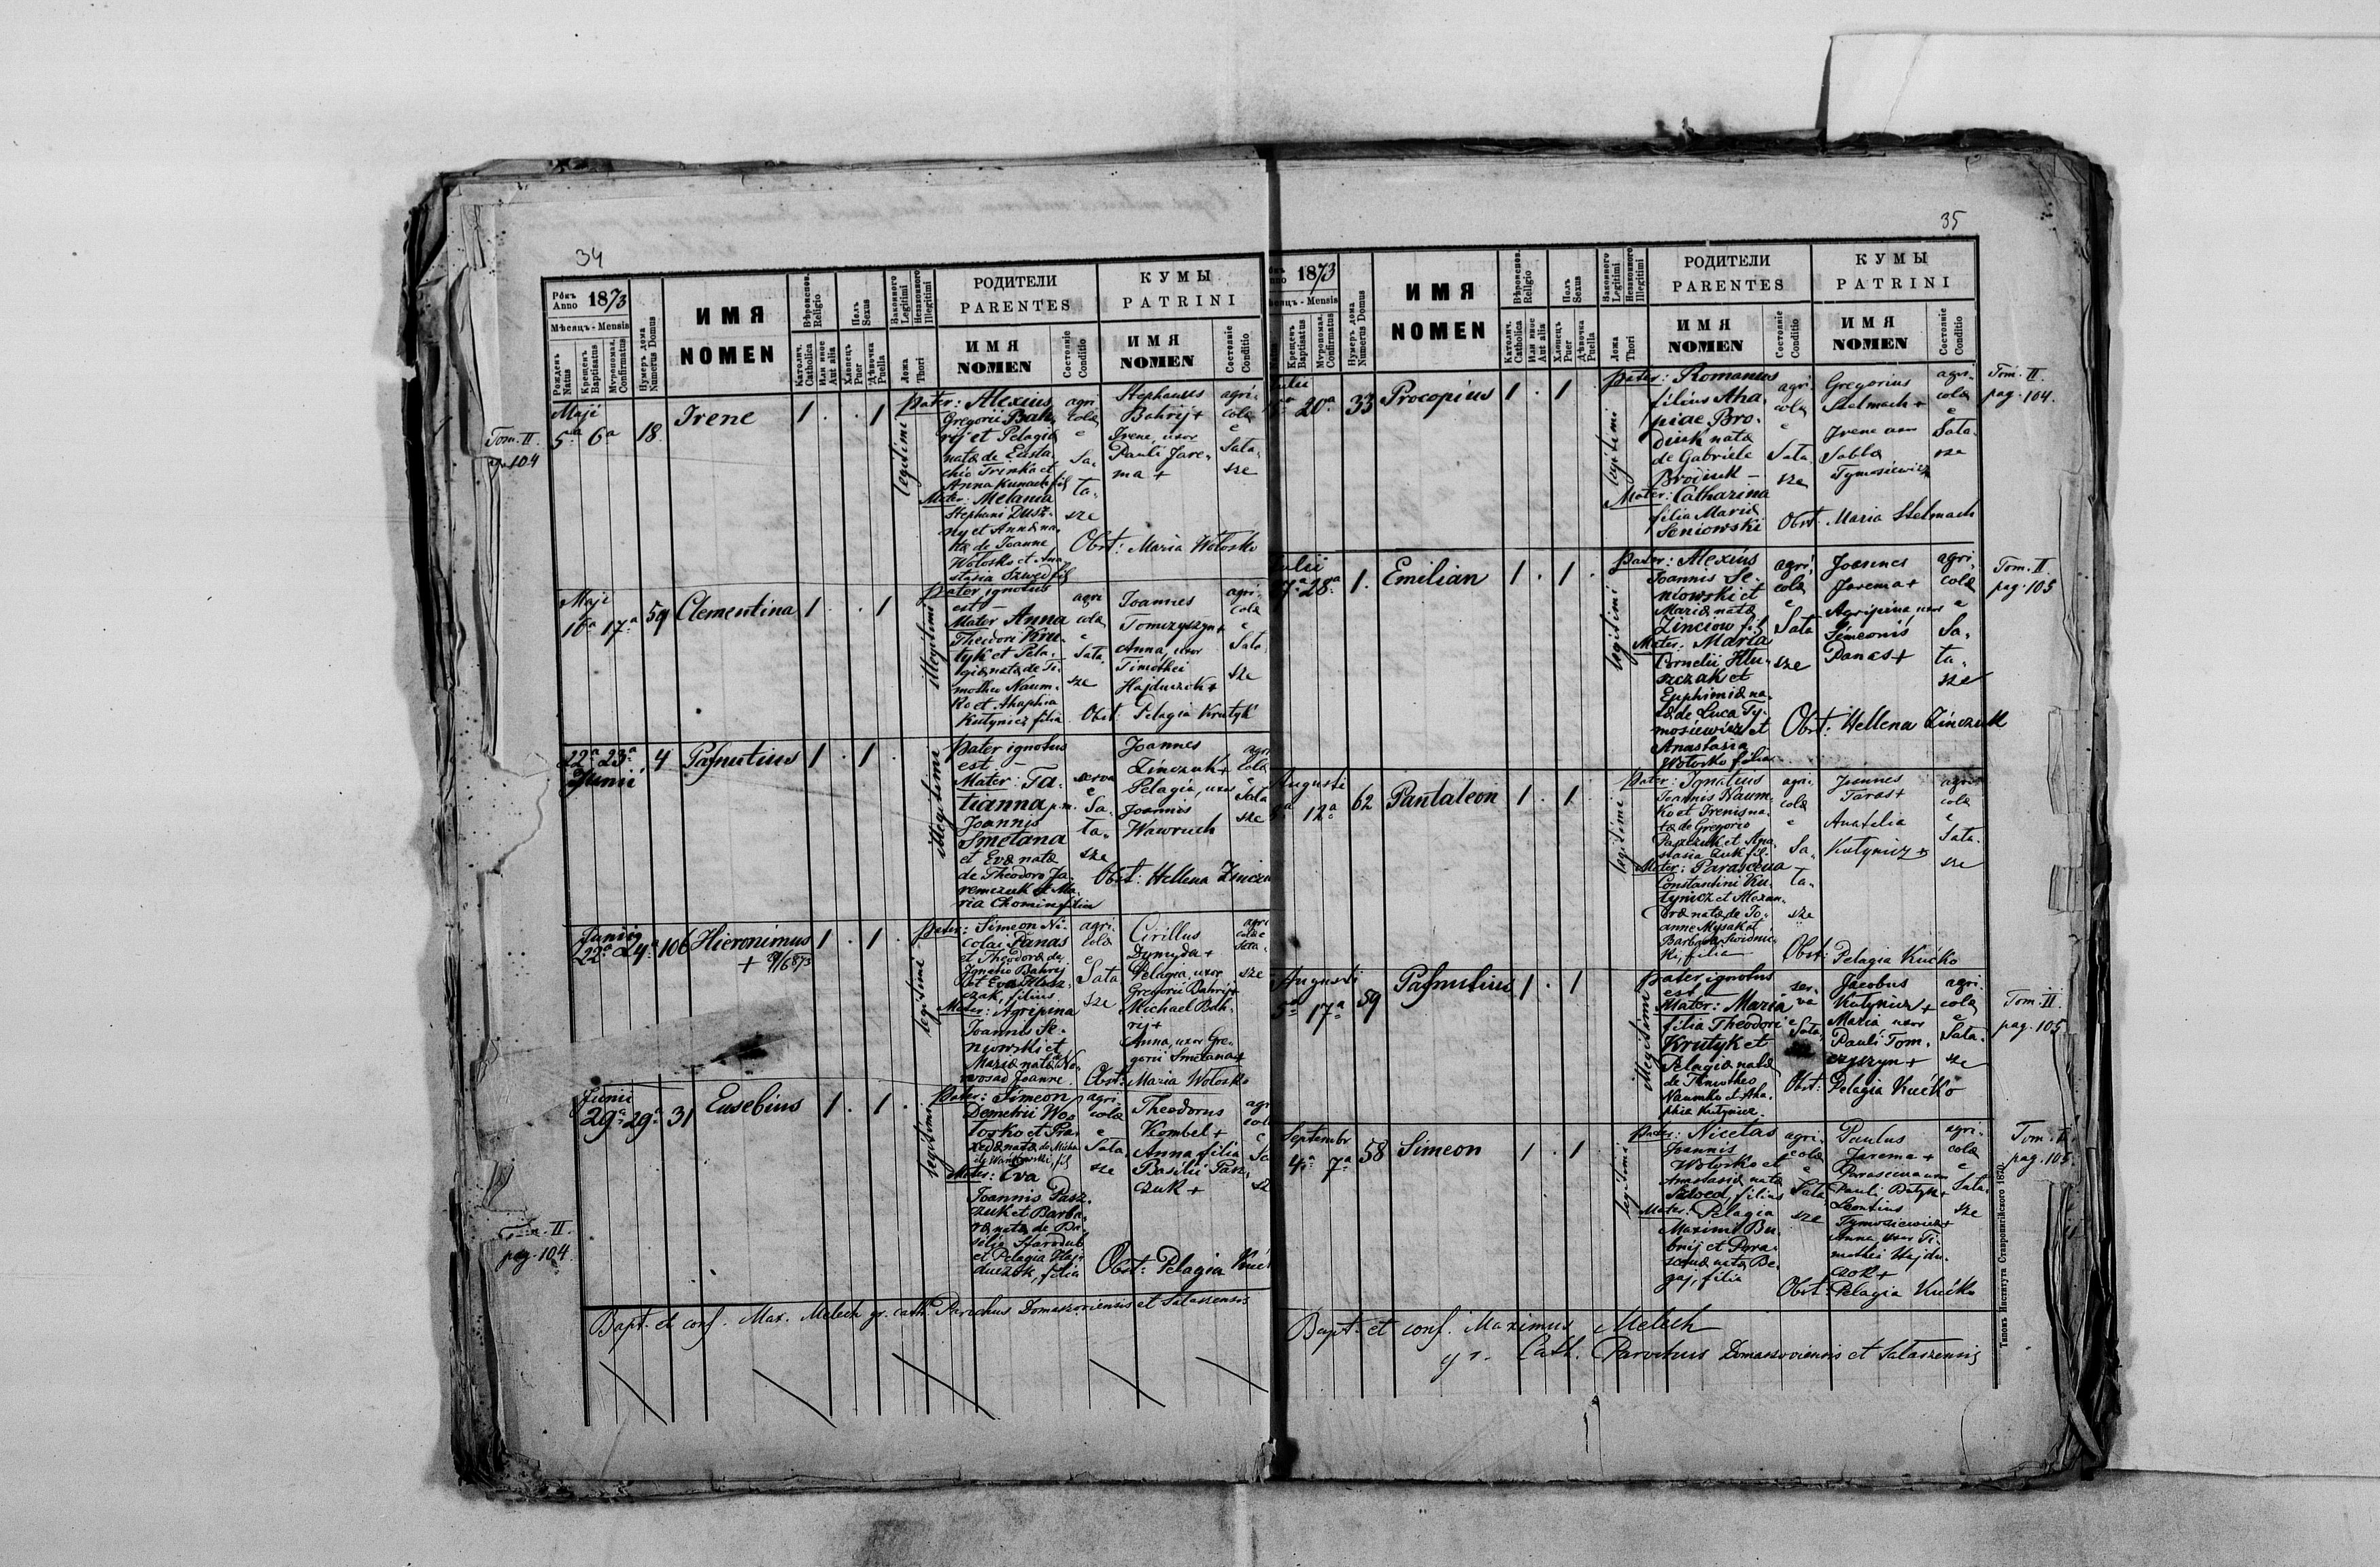 34
Рôкъ Anno 1873
Мѣсяцъ - Mensis
Рожденъ Natus
Крещенъ Baptisatus
Мvропомаз. Confirmatus
Нумеръ дома Numerus Domus
ИМЯ
NOMEN
Вѣроиспов. Religio
Католич. Catholica
Или иное Aut alia
Полъ Sexus
Хлопецъ Puer
Дѣвочка Puella
Законного Legitimi
Незаконного Illegitimi
Ложа Thori
РОДИТЕЛИ
PARENTES
ИМЯ
NOMEN
Состоянiе Conditio
КУМЫ
PATRINI
ИМЯ
NOMEN
Состоянiе Conditio
Tom. II.
pag. 104
Maji
5a 6a 18. Irene 1 . . 1
legitimi
Pater: Alexius
Gregorii Bah-
rij et Pelagia
nata de Eusta-
chio Trinko et
Mater: Melania
Stephani Dusz-
ny et Anna na-
ta de Joanne
Wołosko et Ana-
stasia Szwed fil
agri
cola
e
Sa-
ta-
sze
Stephanus
Bahrij +
Irene, uxor
Pauli Jare-
ma +
agri-
cola
e
Sata-
sze
Obst: Maria Wołosko
Maji
16a 17a 59 Clementina 1 . . 1
illegitimi
Pater ignotus
est –
Mater Anna
Theodori Kru-
tyk et Pela-
gia nata de Ti-
motheo Naum-
ko et Ahaphia
Kutynicz filia
agri
cola
e
Sata-
sze
Joannes
Tomczyszyn +
Anna, uxor
Timothei
Hajduczok +
agri-
cola
e
Sata
sze
Obst: Pelagia Krutyk
22a 23a 4 Pafnutius 1 . 1 .
Junii
illegitimi
Pater ignotus
est –
Mater: Ta-
tianna p.m.
Joannis
Smetana
et Eva nata
de Theodoro Ja-
remczuk et Ma-
ria Chomin filia
serva
e
Sa-
ta-
sze
Joannes
Zinczuk +
Pelagia, uxor
Joannis
Wawruch
agri
cola
e
Sata
sze
Obst: Hellena Zinczu
Junii
22a 24a 106 Hieronimus 1 . 1 .
legitimi
Pater: Simeon Ni-
colai Panas
et Theodora de
Ignatio Bahrij
et Eva Hlusz-
czak, filius.
Mater: Agripina
Joannis Se-
niowski et
Maria nata No-
wosad Joanne
agri-
cola
e
Sata
sze
Cirillus
Dzmyda +
Pelagia, uxor
Gregorii Bahrij +
Michael Bah-
rij +
Anna, uxor Gre-
gorii Smetana +
agri
cola e
Sata-
sze
Obst: Maria Wołosko
Junii
29a 29a 31 Eusebius 1 . 1 .
legitimi
Pater: Simeon
Demetrii Wo-
łosko et Pra-
xeda nata de Micha-
Mater: Eva
Joannis Pasz-
czuk et Barba-
ra nata de Ba-
silio Starodub
et Pelagia Haj-
duczok, filia
agri-
cola
e
Sata
sze
Theodorus
Kombel +
Anna filia
Basilii Pasz-
czuk +
agri
cola
e
Sa
sz
Obst: Pelagia Kuć
Tom. II
pag. 104
Bapt. et conf. Max. Melech gr. cath. Parochus Domaszoviensis et Sataszensis
35
1873
Мѣсяцъ - Mensis
Крещенъ Baptisatus
Мvропомаз. Confirmatus
Нумеръ дома Numerus Domus
ИМЯ
NOMEN
Вѣроиспов. Religio
Католич. Catholica
Или иное Aut alia
Полъ Sexus
Хлопецъ Puer
Дѣвочка Puella
Законного Legitimi
Незаконного Illegitimi
Ложа Thori
РОДИТЕЛИ
PARENTES
ИМЯ
NOMEN
Состоянiе Conditio
КУМЫ
PATRINI
ИМЯ
NOMEN
Состоянiе Conditio
Julii
20a 33 Procopius 1 . 1 .
legitimi
Pater: Romanus
filius Aha-
piae Bro-
diuk nata
de Gabriele
Brodiuk –
Mater: Catharina
filia Maria
Seniowski
agri-
cola
e
Sata
sze
Gregorius
Stelmach +
Irene uxor
Sabba
Tymosiewicz
agri-
cola
e
Sata-
sze
Obst: Maria Stelmach
Tom. II.
pag. 104.
Julii
28a 1. Emilian 1 . 1 .
legitimi
Pater: Alexius
Joannis Se-
niowski et
Maria nata
Zinciow fil
Mater: Maria
Cornelii Hlu-
szczak et
Euphimia na-
ta de Luca Ty-
mosiewicz et
Anastasia
Wołosko filia
agri-
cola
e
Sata
sze
Joannes
Jarema +
Agripina uxor
Simeonis
Panas +
agri-
cola
e
Sa-
ta-
sze
Obst: Hellena Zinczuk
Tom. II.
pag. 105
Augusti
12a 62 Pantaleon 1 . 1 .
legitimi
Pater: Ignatius
Joannis Naum-
ko et Irenis na-
ta de Gregorio
Paszczuk et Ana-
stasia Zuk fil
Mater: Parasceva
Constantini Ku-
tynicz et Alexan-
dra nata de Jo-
anne Mysak et
Barbara Swidnic-
ki, filia
agri-
cola
e
Sa-
ta-
sze
Joannes
Taras +
Anatolia
Kutynicz +
agri
cola
e
Sata-
sze
Obst: Pelagia Kućko
Augusti
5a 17a 59 Pafnutius 1 . 1
illegitimi
Pater ignotus
est –
Mater: Maria
filia Theodori
Krutyk et
Pelagia nata
de Timotheo
Naumko et Aha-
phia Kutynicz.
ser-
va
e
Sata
Jacobus
Kutynicz +
Maria uxor
Pauli Tom-
czyszyn +
agri-
cola
e
Sata-
sze
Obst: Pelagia Kućko
Tom. II.
pag. 105
Septembr
4a 7a 58 Simeon 1 . 1
legitimi
Pater: Nicetas
Joannis
Wołosko et
Anastasia nata
Szwed, filius
Mater: Pelagia
Maximi Bu-
brij et Para-
scevia nata Be-
gaj, filia
agri-
cola
e
Sata
sze
Paulus
Jarema +
Parasceva uxor
Pauli Dutyk +
Leontius
Tymosiewicz +
Anna, uxor Ti-
mothei Hajdu-
czok +
agri-
cola
e
Sata-
sze
Obst: Pelagia Kućko
Tom. II.
pag. 105.
Bapt. et conf. Maximus Melech
gr. Cath. Parochus Domaszoviensis et Sataszensis
Типомъ Института Ставропигiйского 1870.